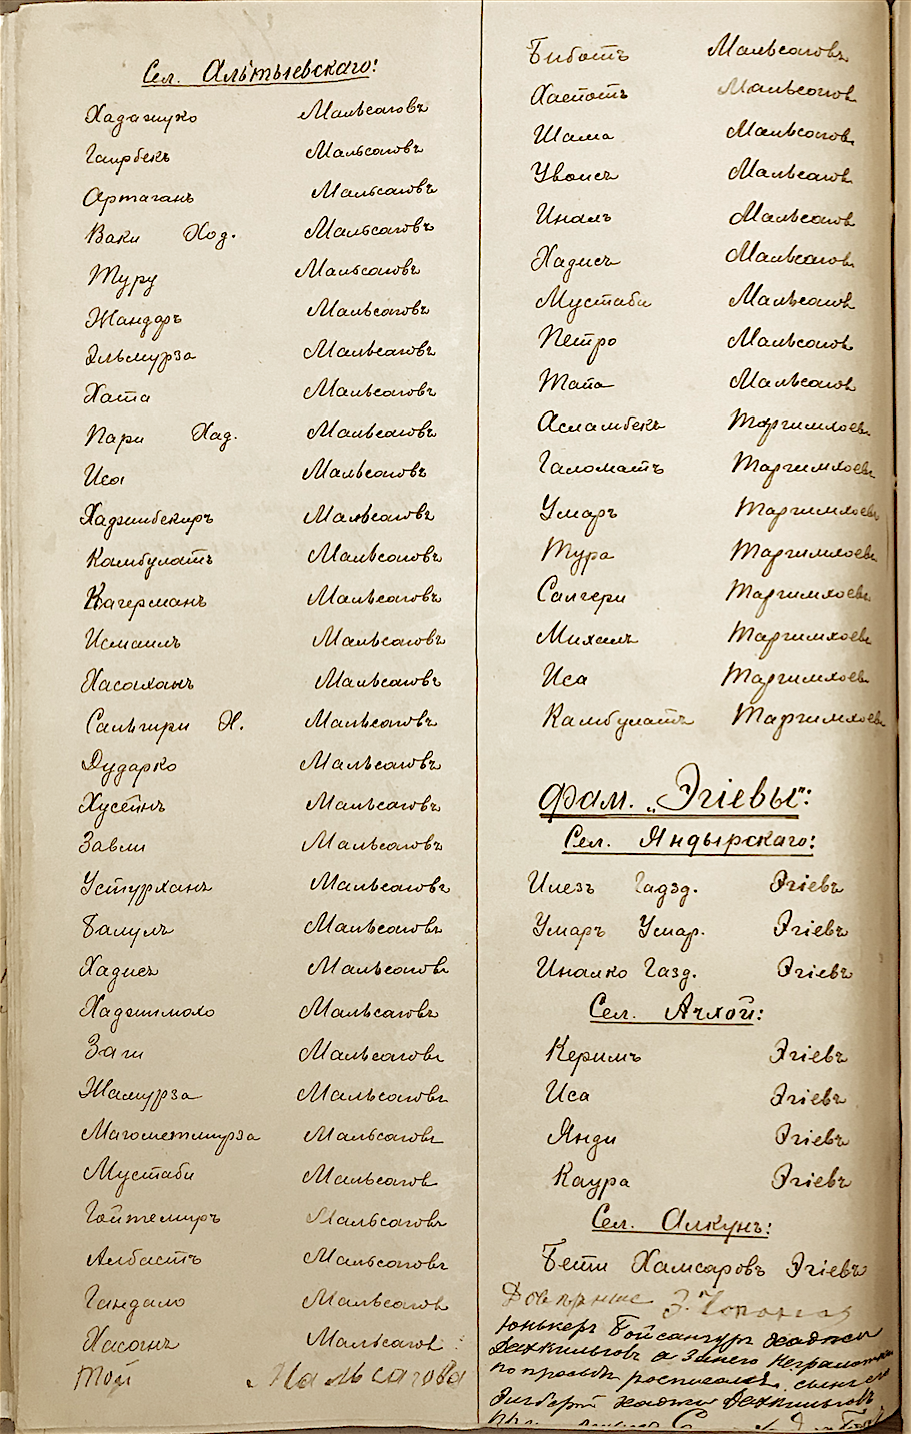 Сел. Альтыевскаго:
Хадажуко Мальсаговъ
Гаирбекъ Мальсаговъ
Артаганъ Мальсаговъ
Ваки Ход. Мальсаговъ
Туру Мальсаговъ
Жандаръ Мальсаговъ
Эльмурза Мальсаговъ
Хата Мальсаговъ
Пари Хад. Мальсаговъ
Иса Мальсаговъ
Хаджибекиръ Мальсаговъ
Камбулатъ Мальсаговъ
Кагерманъ Мальсаговъ
Исмаилъ Мальсаговъ
Хасаханъ Мальсаговъ
Сальгири Х. Мальсаговъ
Дударко Мальсаговъ
Хусейнъ Мальсаговъ
Завли Мальсаговъ
Устурханъ Мальсаговъ
Мальсаговъ
Хадисъ Мальсаговъ
Хаджимохо Мальсаговъ
Заги Мальсаговъ
Жамурза Мальсаговъ
Магометмурза Мальсаговъ
Мустаби Мальсаговъ
Гойтемиръ Мальсаговъ
Албастъ Мальсаговъ
Гандало Мальсаговъ
Хасанъ Мальсаговъ
Той Мальсагова
Биботъ Мальсаговъ
Хаспотъ Мальсаговъ
Шама Мальсаговъ
Увайсъ Мальсаговъ
Иналъ Мальсаговъ
Хадисъ Мальсаговъ
Мустаби Мальсаговъ
Петро Мальсаговъ
Тата Мальсаговъ
Асламбекъ Таргимхоевъ
Галоматъ Таргимхоевъ
Умаръ Таргимхоевъ
Тура Таргимхоевъ
Саигери Таргимхоевъ
Михаилъ Таргимхоевъ
Иса Таргимхоевъ
Камбулатъ Таргимхоевъ
Фам. „Эгіевы":
Сел. Яндырскаго:
Илезъ Гадзд. Эгіевъ
Умаръ Умар. Эгіевъ
Иналко Газд. Эгіевъ
Сел. Ачхой:
Керимъ Эгіевъ
Иса Эгіевъ
Янди Эгіевъ
Каура Эгіевъ
Сел. Алкунъ:
Бети Хамсаровъ Эгіевъ
З.
Юнкеръ Бойсангуръ хаджи
Дахкильговъ а за него неграмотн
по просьбѣ росписался сынъ его
Эльберт хаджи Дахкильговъ